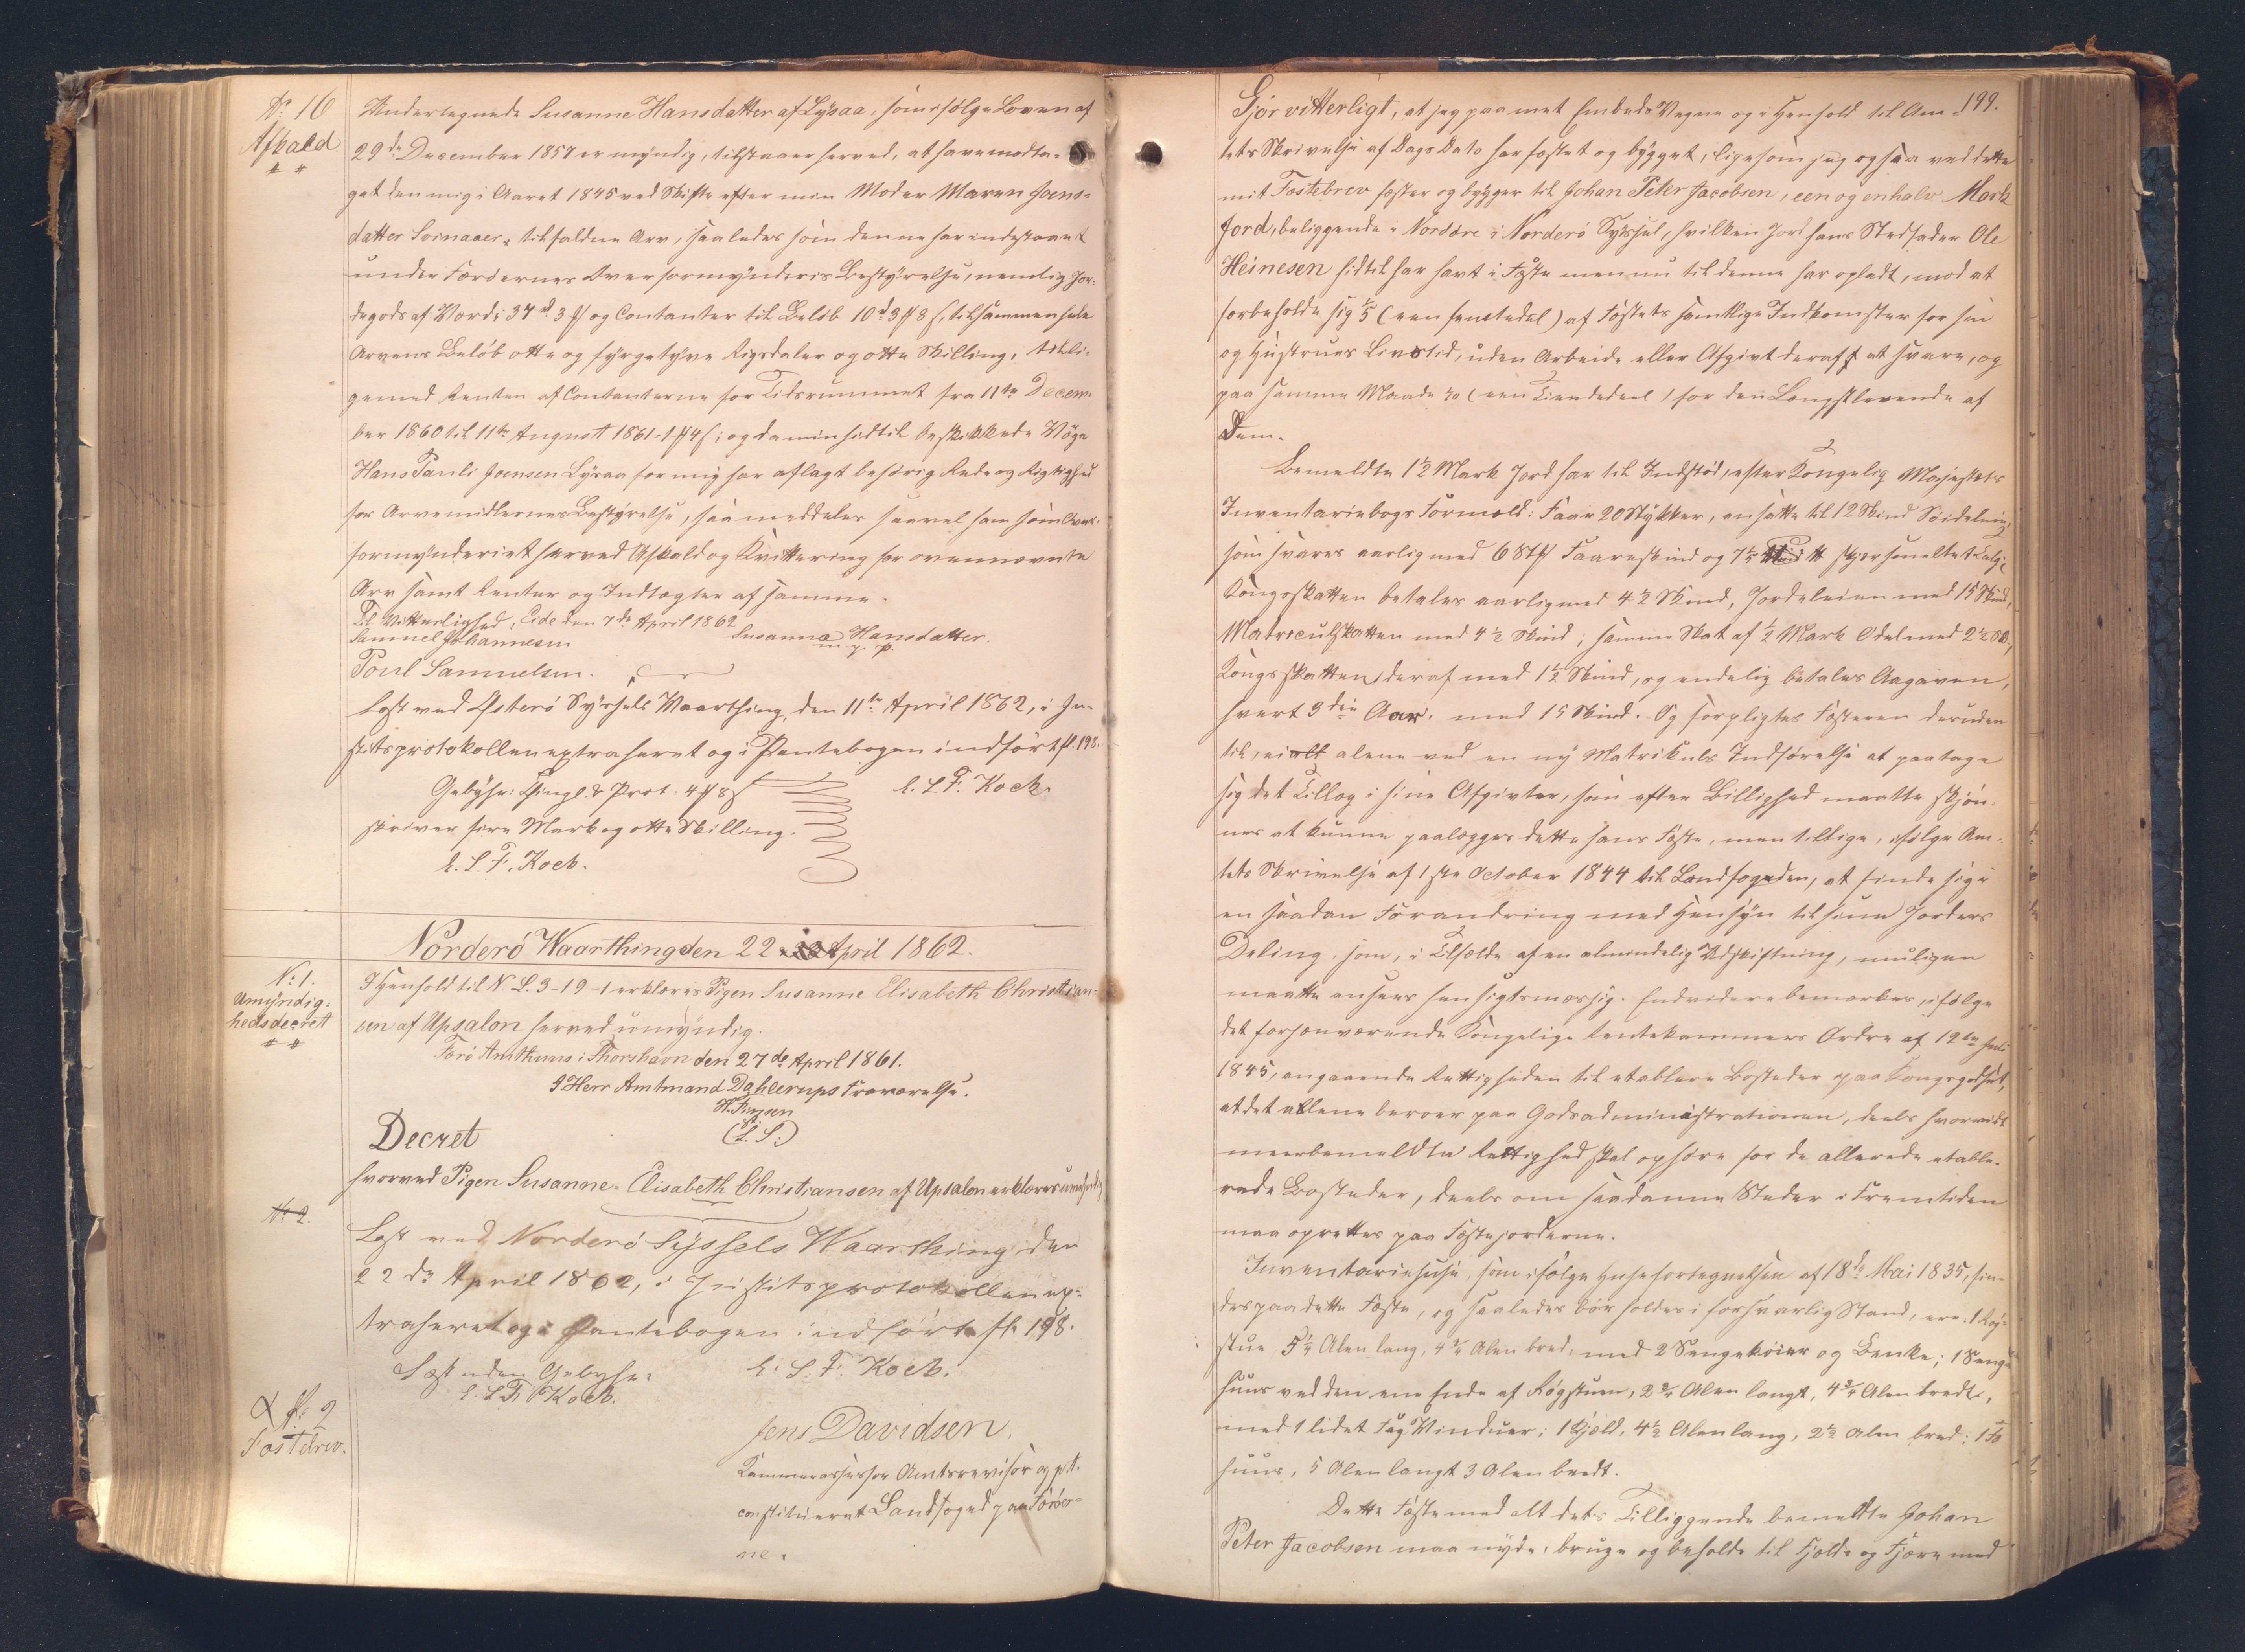 No. 16
Afkald
Undertegnede Susanne Hansdatter af Lysaa, som ifølge Loven af
29de December 1857 er myndig, tilstaaer herved, at have modta-
get den mig i Aaret 1845 ved Skifte efter min Moder Maren Joens-
datter Sornaaer, tilfaldne Arv, saaledes som denne har indestaaet
under Færøernes Overformynderies Bestyrelse, nemlig Jor-
degods af Værdi 37 d. 3 og Contanter til Beløb 10 d 3 8 s, tilsammen hele
Arvens Beløb otte og fyrgetyve Rigsdaler og otte Skilling, tilli-
gemed Renten af Contanterne for Tidsrummet fra 11te Decem-
ber 1860 til 11te August 1861 - 1 4 s; og da min hidtil beskikkedeVærge
Hans Pauli Joensen Lysaa for mig har aflagt behørig Rede og Rigtighed
for Arvemidlernes Bestyrelse, saa meddeles saavel ham som Over-
formynderiet herved Afkald og Kvittering for ovennævnte
Arv samt Renter og Indtægter af samme.
Til Vitterlighed: Eide den 7de April 1862
Samuel Johannesen Susanne Hansdatter.
m. f. P.
Poul Samuelsen.
Læst ved Østerø Syssels Vaarthing, den 11te April 1862, i Ju-
stitsprotokollen extraheret og i Pantebogen indført fl. 198.
Gebyhr: Thingl. & Prot. 4 8 s E. S. F. Koch.
skriver fire Mark og otte Skilling.
E. S. F. Koch.
Norderø Waarthing den 22 April 1862.
No. 1.
Umyndig-
hedsdecrett
I Henhold til N. L. 3-19-1 erklæres Pigen Susanne Elisabeth Christian-
sen af Upsalon herved umyndig.
Færø Amthuus i Thorshavn den 27de April 1861.
I Herr Amtmand Dahlerups Fraværelse.
(L. S.)
Decret
hvorved Pigen Susanne Elisabeth Christiansen af Upsalon erklæres umyndig
No. 2.
Læst ved Norderø Syssels Waarthing den
22de April 1862, i Justitsprotokollen ex-
traheret og i Pantebogen indført fl. 198.
Læst uden Gebyhr. E. S. F. Koch.
E. S. F. Koch.
No. 2
Fæstebrev.
Jens Davidsen.
Kammerassessor Amtsrevisor og p. t.
constitueret Landfoged paa Færøer-
ne.
199.
Gjør vitterligt, at jeg paa mit Embeds Vegne og i Henhold til Am-
tets Skrivelse af Dags Dato har fæstet og bygget, ligesom jeg ogsaa ved dette
mit Fæstebrev fæster og bygger til Johan Peter Jacobsen, een og en halv Mark
Jord, beliggende i Nordøre i Norderø Syssel, hvilken Jord hans Stedfader Ole
Heinesen hidtil har havt i Fæste men nu til denne har opladt, mod at
forbeholde sig 1/5 (een femtedel) af Fæstets samtlige Indkomster for sin
og Hustrues Livstid, uden Arbeide eller Afgivt deraf at svare, og
paa samme Maade 1/10 (een Tiendedeel) for den Længstlevende af
Dem.
Bemeldte 1½ Mark Jord har til Indstød, efter Kongelig Majestets
Inventariebogs Formeld: Faar 20 Stykker, ansatte til 12 Skind
som svares aarlig med Faareskind og smeltet Talg;
Kongsskatten betales aarlig med 4½ Skind, Jordeleien med 15 Skind,
Matriculskatten med 4½ Skind; samme Skat af ½ Mark Odel med 2½ Sk.,
Kongsskatten deraf med 1½ Skind, og endelig betales Aagaven,
hvert 3die Aar, med 15 Skind. Og forpligtes Fæsteren desuden
til, ei alene ved en ny Matrikuls Indførelse at paatage
sig det Tillæg i sine Afgivter, som efter Billighed maatte skjøn-
nes at kunne paalægges dette hans Fæste, men tillige, ifølge Am-
tets Skrivelse af 1ste October 1844 til Landfogden, at finde sig i
en saadan Forandring med Hensyn til sine Jorders
Deling, som, i Tilfælde af en almindelig Udskiftning, muligen
maatte ansees hensigtsmæssig. Endvidere bemærkes, ifølge
det forhenværende Kongelige Rentekammers Ordre af 12te Juli
1845, angaaende Rettigheden til etablere Bosteder paa Kongsgodset,
at det allene beroer paa Godsadministrationen, deels hvorvidt
meerbemeldte Rettighed skal ophøre for de allerede etable-
rede Bosteder, deels om saadanne Steder i Fremtiden
maa oprettes paa Fæstejorderne.
Inventariehuse, som ifølge Husefortegnelsen af 18de Mai 1835, fin-
des paa dette Fæste, og saaledes bør holdes i forsvarlig Stand, ere: 1 Røg-
stue, 5¼ Alen lang, 4¾ Alen bred, med 2 Sengekøier og Bænke; 1 Senge
huus ved den ene Ende af Røgstuen, 2¾ Alen langt, 4¾ Alen bredt,
med 1 lidet Fag Vinduer; 1 Hjeld, 4½ Alen lang, 2½ Alen bred; 1 Fæ
huus, 5 Alen langt 3 Alen bredt.
Dette Fæste med alt dets Tilliggende bemeldte Johan
Peter Jacobsen maa nyde, bruge og beholde til Fjelde og Fjære med